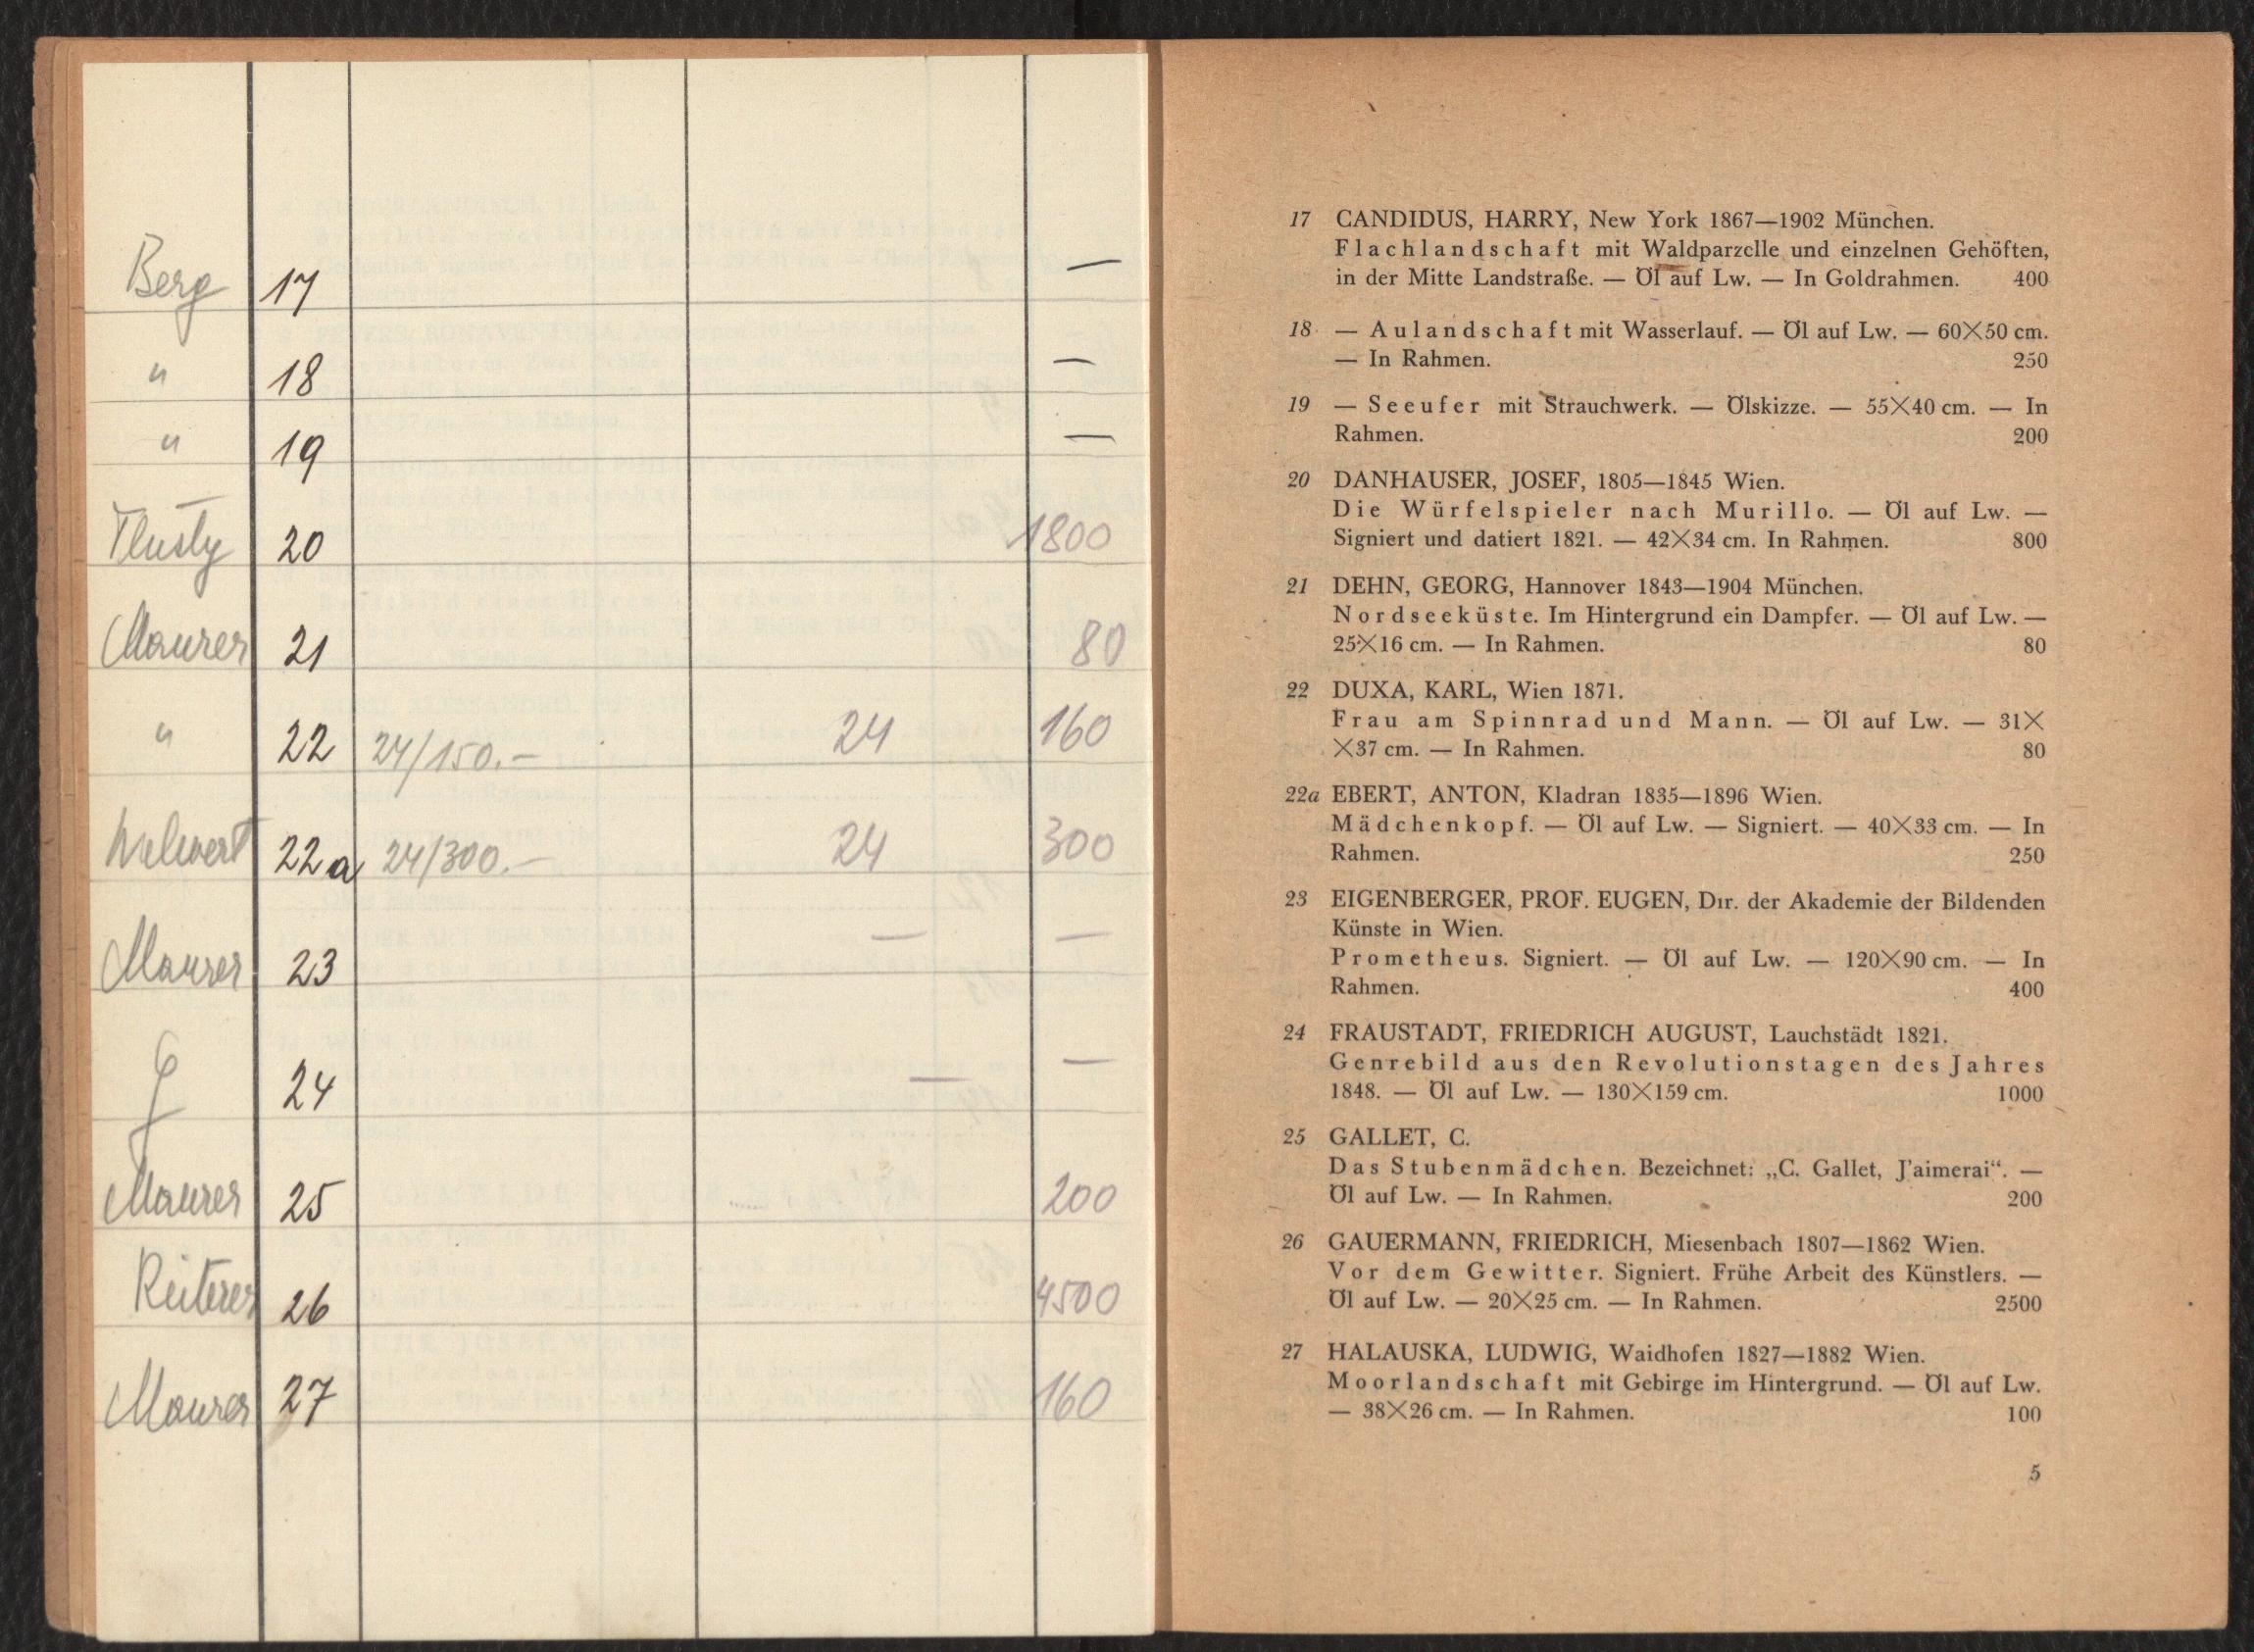 Berg 17 —
" 18 —
" 19 —
Tlusty 20 1800
Maurer 21 80
" 22 24/150.- 24 160
22a 24/300.- 24 300
Maurer 23 — —
24 — —
Maurer 25 200
Reiterer 26 4500
Maurer 27 160
17 CANDIDUS, HARRY, New York 1867—1902 München.
Flachlandschaft mit Waldparzelle und einzelnen Gehöften,
in der Mitte Landstraße. — Öl auf Lw. — In Goldrahmen. 400
18 — Aulandschaft mit Wasserlauf. — Öl auf Lw. — 60×50 cm.
— In Rahmen. 250
19 — Seeufer mit Strauchwerk. — Ölskizze. — 55×40 cm. — In
Rahmen. 200
20 DANHAUSER, JOSEF, 1805—1845 Wien.
Die Würfelspieler nach Murillo. — Öl auf Lw. —
Signiert und datiert 1821. — 42×34 cm. In Rahmen. 800
21 DEHN, GEORG, Hannover 1843—1904 München.
Nordseeküste. Im Hintergrund ein Dampfer. — Öl auf Lw. —
25×16 cm. — In Rahmen. 80
22 DUXA, KARL, Wien 1871.
Frau am Spinnrad und Mann. — Öl auf Lw. — 31×
×37 cm. — In Rahmen. 80
22a EBERT, ANTON, Kladran 1835—1896 Wien.
Mädchenkopf. — Öl auf Lw. — Signiert. — 40×33 cm. — In
Rahmen. 250
23 EIGENBERGER, PROF. EUGEN, Dir. der Akademie der Bildenden
Künste in Wien.
Prometheus. Signiert. — Öl auf Lw. — 120×90 cm. — In
Rahmen. 400
24 FRAUSTADT, FRIEDRICH AUGUST, Lauchstädt 1821.
Genrebild aus den Revolutionstagen des Jahres
1848. — Öl auf Lw. — 130×159 cm. 1000
25 GALLET, C.
Das Stubenmädchen. Bezeichnet: „C. Gallet, J'aimerai“. —
Öl auf Lw. — In Rahmen. 200
26 GAUERMANN, FRIEDRICH, Miesenbach 1807—1862 Wien.
Vor dem Gewitter. Signiert. Frühe Arbeit des Künstlers. —
Öl auf Lw. — 20×25 cm. — In Rahmen. 2500
27 HALAUSKA, LUDWIG, Waidhofen 1827—1882 Wien.
Moorlandschaft mit Gebirge im Hintergrund. — Öl auf Lw.
— 38×26 cm. — In Rahmen. 100
5